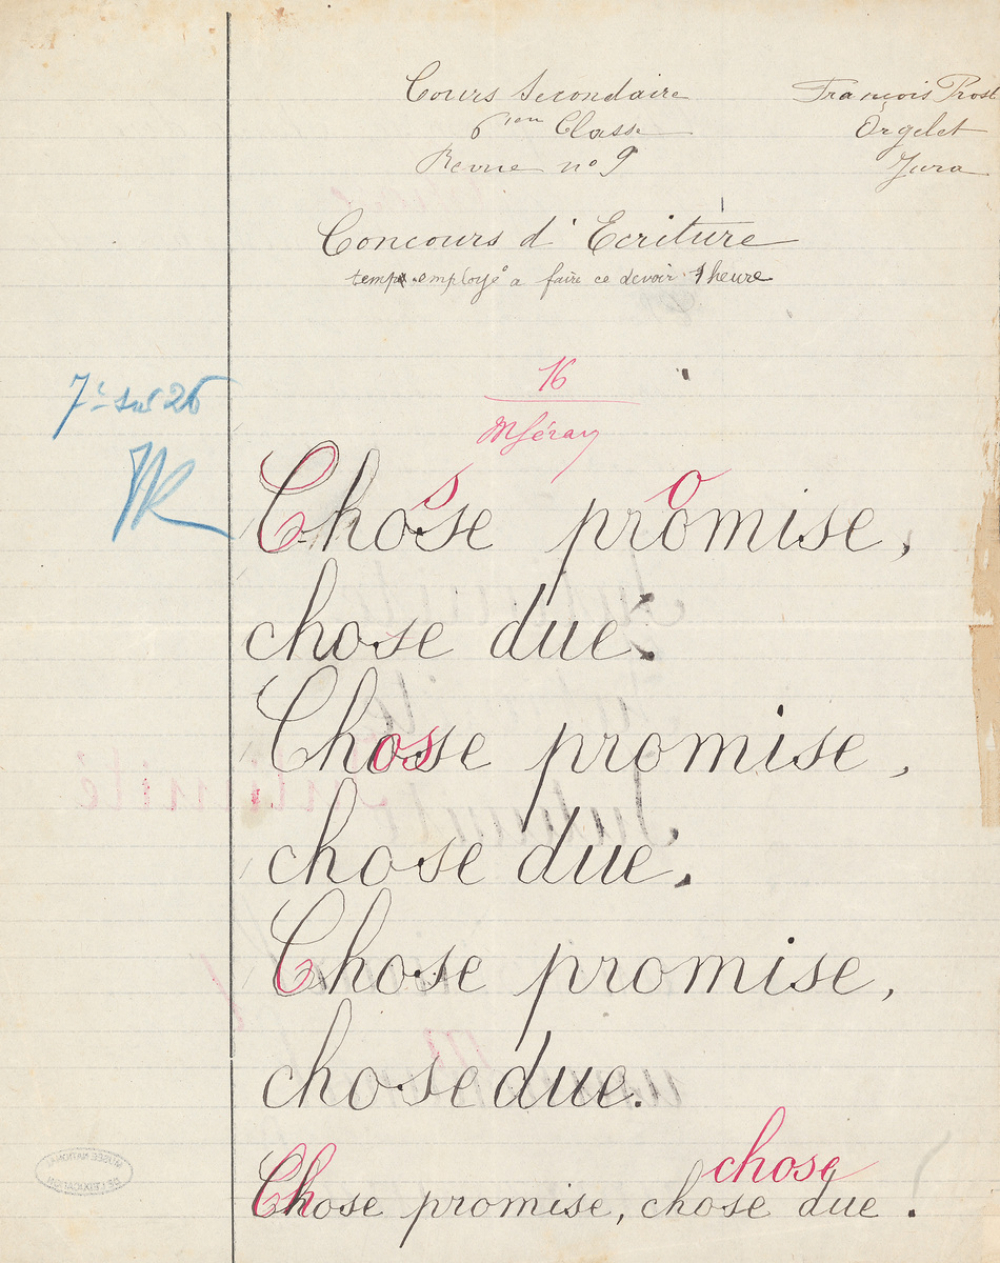 Cours Secondaire
6ieu Classe
Revue no 9
François Prost
Orgelet
Jura
Concours d'Ecriture
temps employé a faire ce devoir 1 heure
16
7e sur 26
Chose promise,
s o
chose due.
Chose promise,
os
chose due.
Chose promise,
chose due.
chose
Chose promise, chose due.